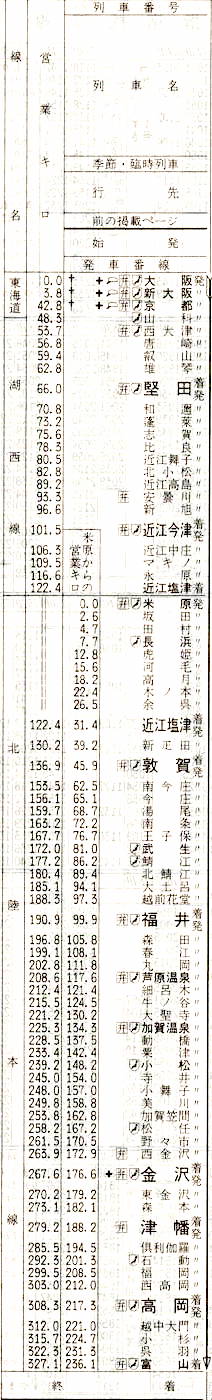 列車番号
線名
営業キロ
列車名
季節・臨時列車
行先
前の掲載ページ
始発
発車番線
東海道
0.0 大阪 発
3.8 新大阪 〃
42.8 京都 〃
湖西線
48.3 山科 〃
53.7 西大津 〃
56.8 唐崎 〃
59.4 叡山 〃
62.8 雄琴 〃
66.0 弁 堅田 着発
70.8 和邇 〃
73.2 蓬莱 〃
75.6 志賀 〃
78.3 比良 〃
80.5 近江舞子 〃
82.8 北小松 〃
89.2 近江高島 〃
93.3 弁 安曇川 〃
96.6 新旭 〃
101.5 弁 近江今津 着発
米原からの営業キロ
106.3 近江中庄 〃
109.5 マキノ 〃
116.6 永原 〃
122.4 近江塩津 着
北陸本線
0.0 弁 米原 発
2.6 坂田 〃
4.7 田村 〃
7.7 長浜 〃
12.8 虎姫 〃
15.6 河毛 〃
18.2 高月 〃
22.4 木ノ本 〃
26.5 余呉 〃
122.4 31.4 近江塩津 着発
130.2 39.2 新疋田 〃
136.9 45.9 弁 敦賀 着発
153.5 62.5 南今庄 〃
156.1 65.1 今庄 〃
159.7 68.7 湯尾 〃
163.2 72.2 南条 〃
167.7 76.7 王子保 〃
172.0 81.0 武生 〃
177.2 86.2 弁 鯖江 〃
180.4 89.4 北鯖江 〃
185.1 94.1 大土呂 〃
188.3 97.3 越前花堂 〃
190.9 99.9 弁 福井 着発
196.8 105.8 森田 〃
199.1 108.1 春江 〃
202.8 111.8 丸岡 〃
208.6 117.6 弁 芦原温泉 〃
212.4 121.4 細呂木 〃
215.5 124.5 牛ノ谷 〃
221.2 130.2 大聖寺 〃
225.3 134.3 弁 加賀温泉 〃
228.5 137.5 動橋 〃
233.4 142.4 粟津 〃
239.2 148.2 小松 〃
245.0 154.0 寺井 〃
248.0 157.0 小舞子 〃
249.8 158.8 美川 〃
253.8 162.8 加賀笠間 〃
258.2 167.2 松任 〃
261.5 170.5 野々市 〃
263.9 172.9 弁 西金沢 〃
267.6 176.6 弁 金沢 着発
270.2 179.2 東金沢 〃
273.1 182.1 森本 〃
279.2 188.2 弁 津幡 着発
285.5 194.5 倶利伽羅 〃
292.3 201.3 石動 〃
299.5 208.5 福岡 〃
303.0 212.0 西高岡 〃
308.3 217.3 弁 高岡 着発
312.0 221.0 越中大門 〃
315.7 224.7 小杉 〃
322.3 231.3 呉羽 〃
327.1 236.1 弁 富山 着
終着